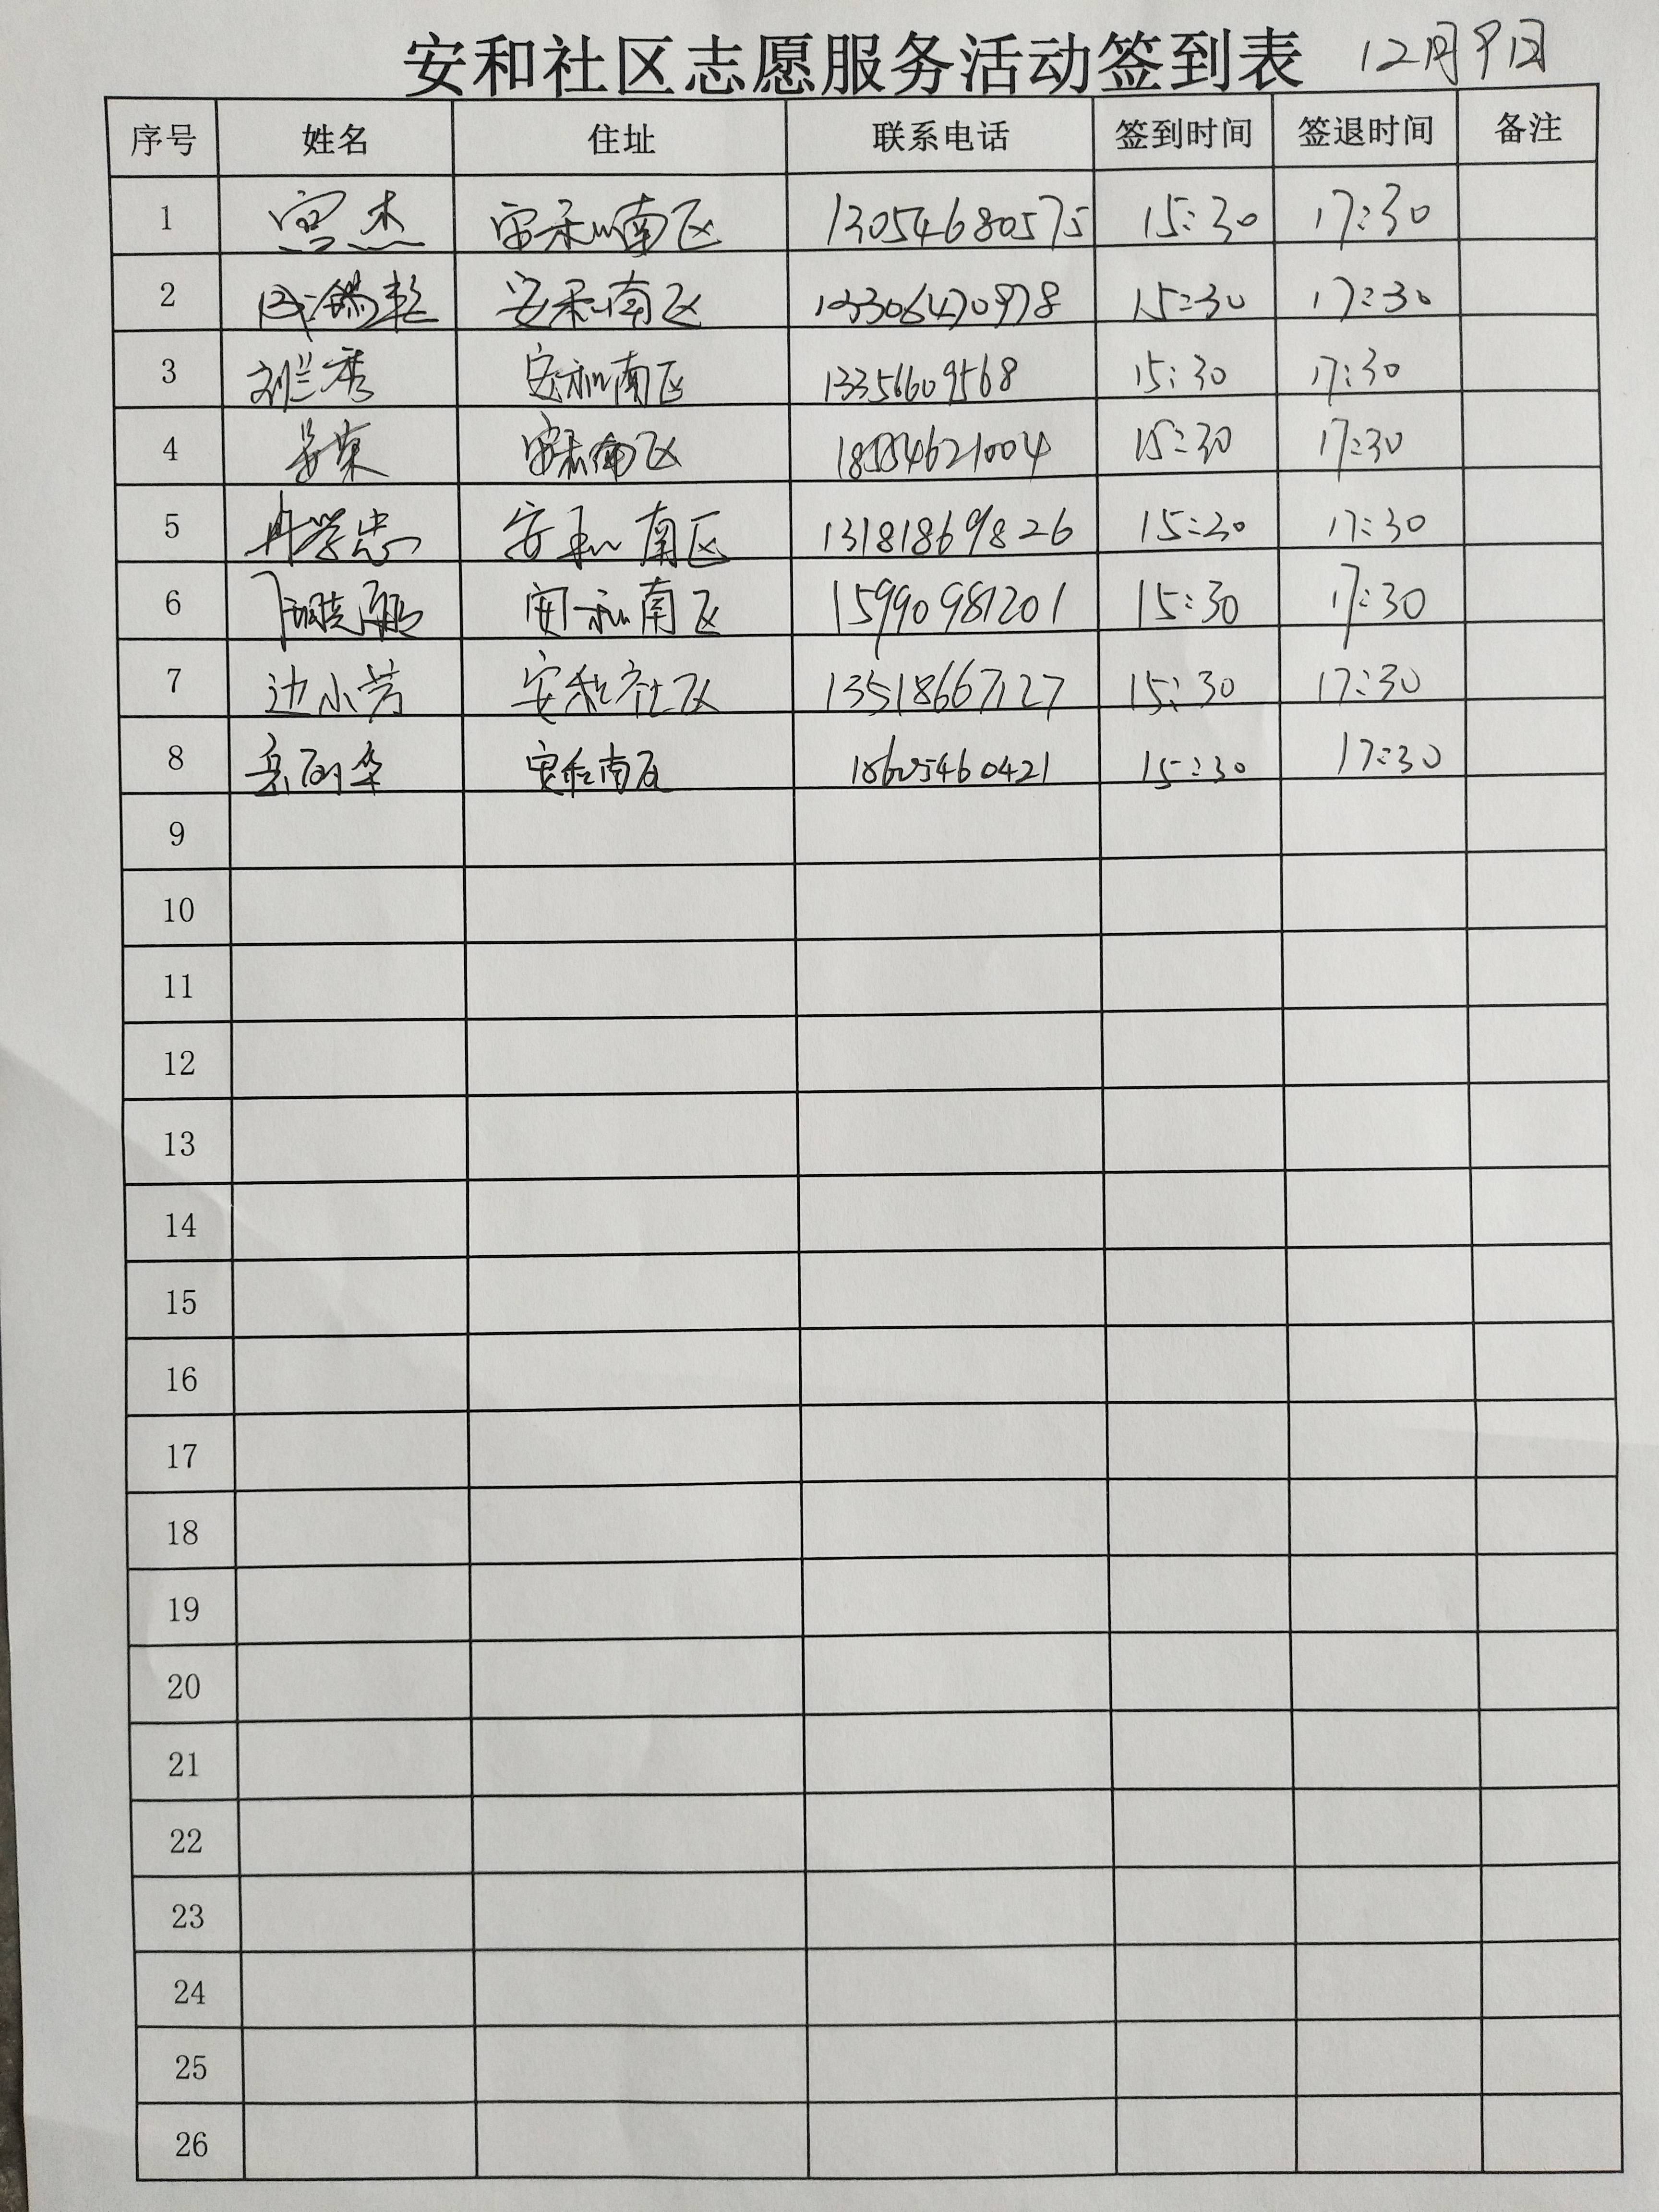 安和社区志愿服务活动签到表 12月9日
序号 姓名 住址 联系电话 签到时间 签退时间 备注
1 宫杰 安和南区 13054680575 15:30 17:30
2 安和南区 13306470978 15:30 17:30
3 刘兰秀 安和南区 13356609568 15:30 17:30
4 安和南区 18554621004 15:30 17:30
5 冉学忠 安和南区 13181869826 15:30 17:30
6 安和南区 15990981201 15:30 17:30
7 边小芳 安和社区 13518667127 15:30 17:30
8 岳丽华 安和南区 18605460421 15:30 17:30
9
10
11
12
13
14
15
16
17
18
19
20
21
22
23
24
25
26